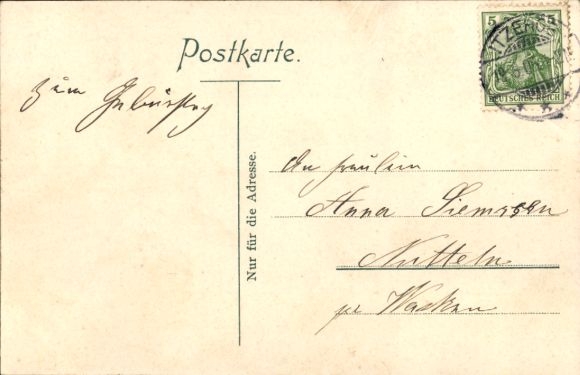 Postkarte.
zum Geburtstag
Nur für die Adresse.
An Fräulein
Anna Siemssen
Nutteln
per Wacken
5 5
ITZEHOE
DEUTSCHES REICH